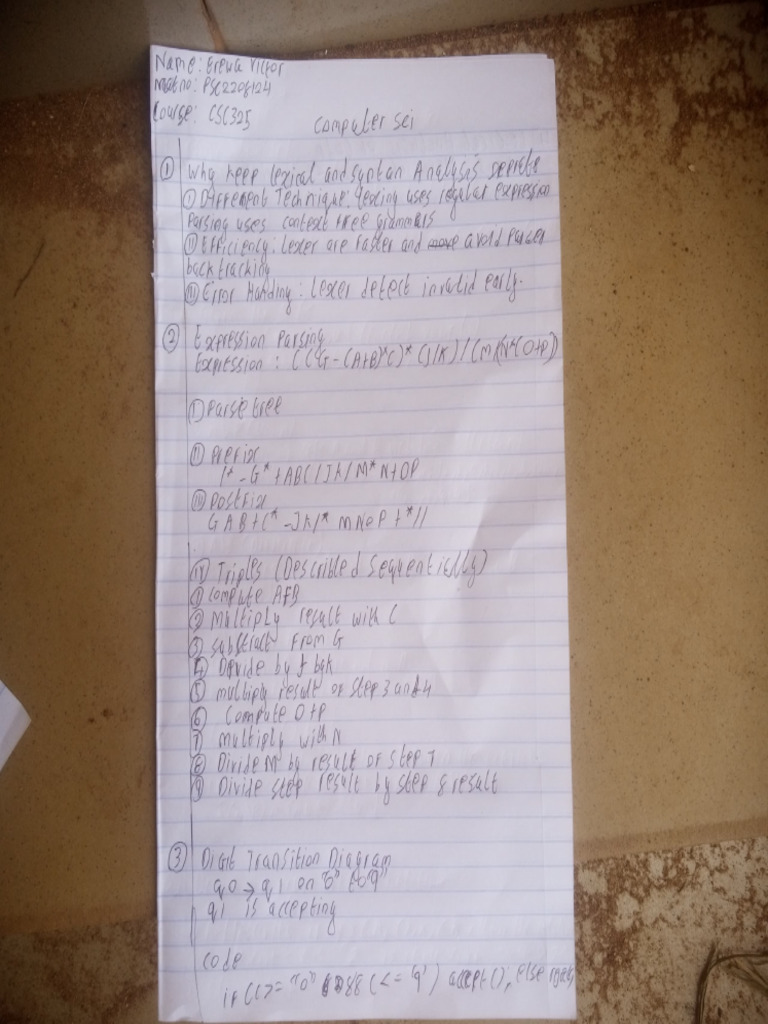 Name: Erewa Victor
Mat no: PSC2208124
Course: CSC325
Computer sci
① Why keep lexical and syntan Analysis seprete
① Different Technique: lexing uses regular expression
Parsing uses context free grammars
② Efficiency: Lexer are faster and avoid Parser
backtracking
③ Error Handing: Lexer detect invalid early.
② Expression Parsing
Expression: ((G-(A+B)*C)*(J/K)/(M/(N*(O+P))
① Parse tree
② Prefix
/*-G*+ABC/JK/M*N+OP
③ Postfix
GAB+C*-JK/* MNOP+*//
④ Triples (Described Sequentically)
① Compute A+B
② Multiply result with C
③ Substract from G
④ Divide by K
⑤ multiply result of step 3 and 4
⑥ Compute O+P
⑦ multiply with N
⑧ Divide M by result of step 7
⑨ Divide step result by step 8 result
③ Digit Transition Diagram
q0 → q1 on "0" to "9"
q1 is accepting
Code
if (c>= "0" && c<= '9') accept(); else